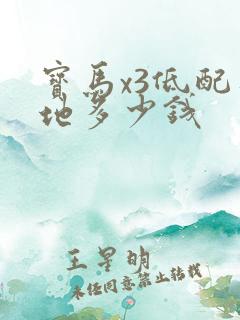 寶馬x3低配
地多少錢
王星明
未任同意禁止转载